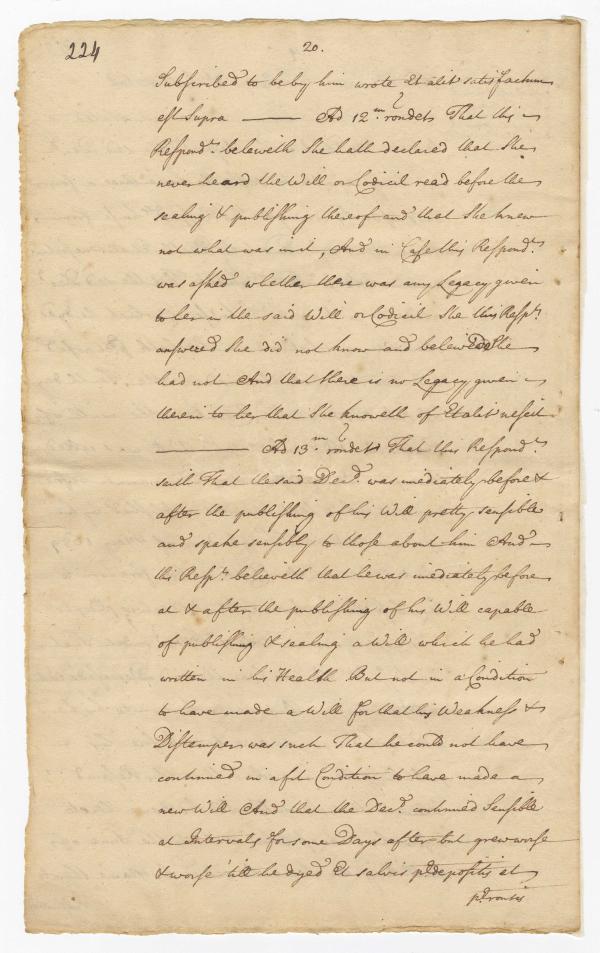 224
20.
Subscribed to be by him wrote Et alit satisfactum
est Supra —— Ad 12.m rondet That this
Respond.t beleiveth She hath declared that She
never heard the Will or Codicil read before the
sealing & publishing thereof and that She knew
not what was in it, And in Case this Respond.t
was asked whether there was any Legacy given
to her in the said Will or Codicil She this Resp.t
answered She did not know and beleived She
had not And that there is no Legacy given
therein to her that She knoweth of Et alit nescit
—— Ad 13.m rondet That this Respond.t
saith That the said Dec.d was imediately before &
after the publishing of his Will pretty sensible
and spake sensibly to those about him And
this Resp.t believeth that he was imediately before
at & after the publishing of his Will capable
of publishing & sealing a Will which he had
written in his Health But not in a Condition
to have made a Will for that his Weakness &
Distemper was such That he could not have
continued in a fit Condition to have made a
new Will And that the Dec.d continued Sensible
at Intervals for some Days after but grew worse
& worse 'till he dyed Et salvis p.depositis at